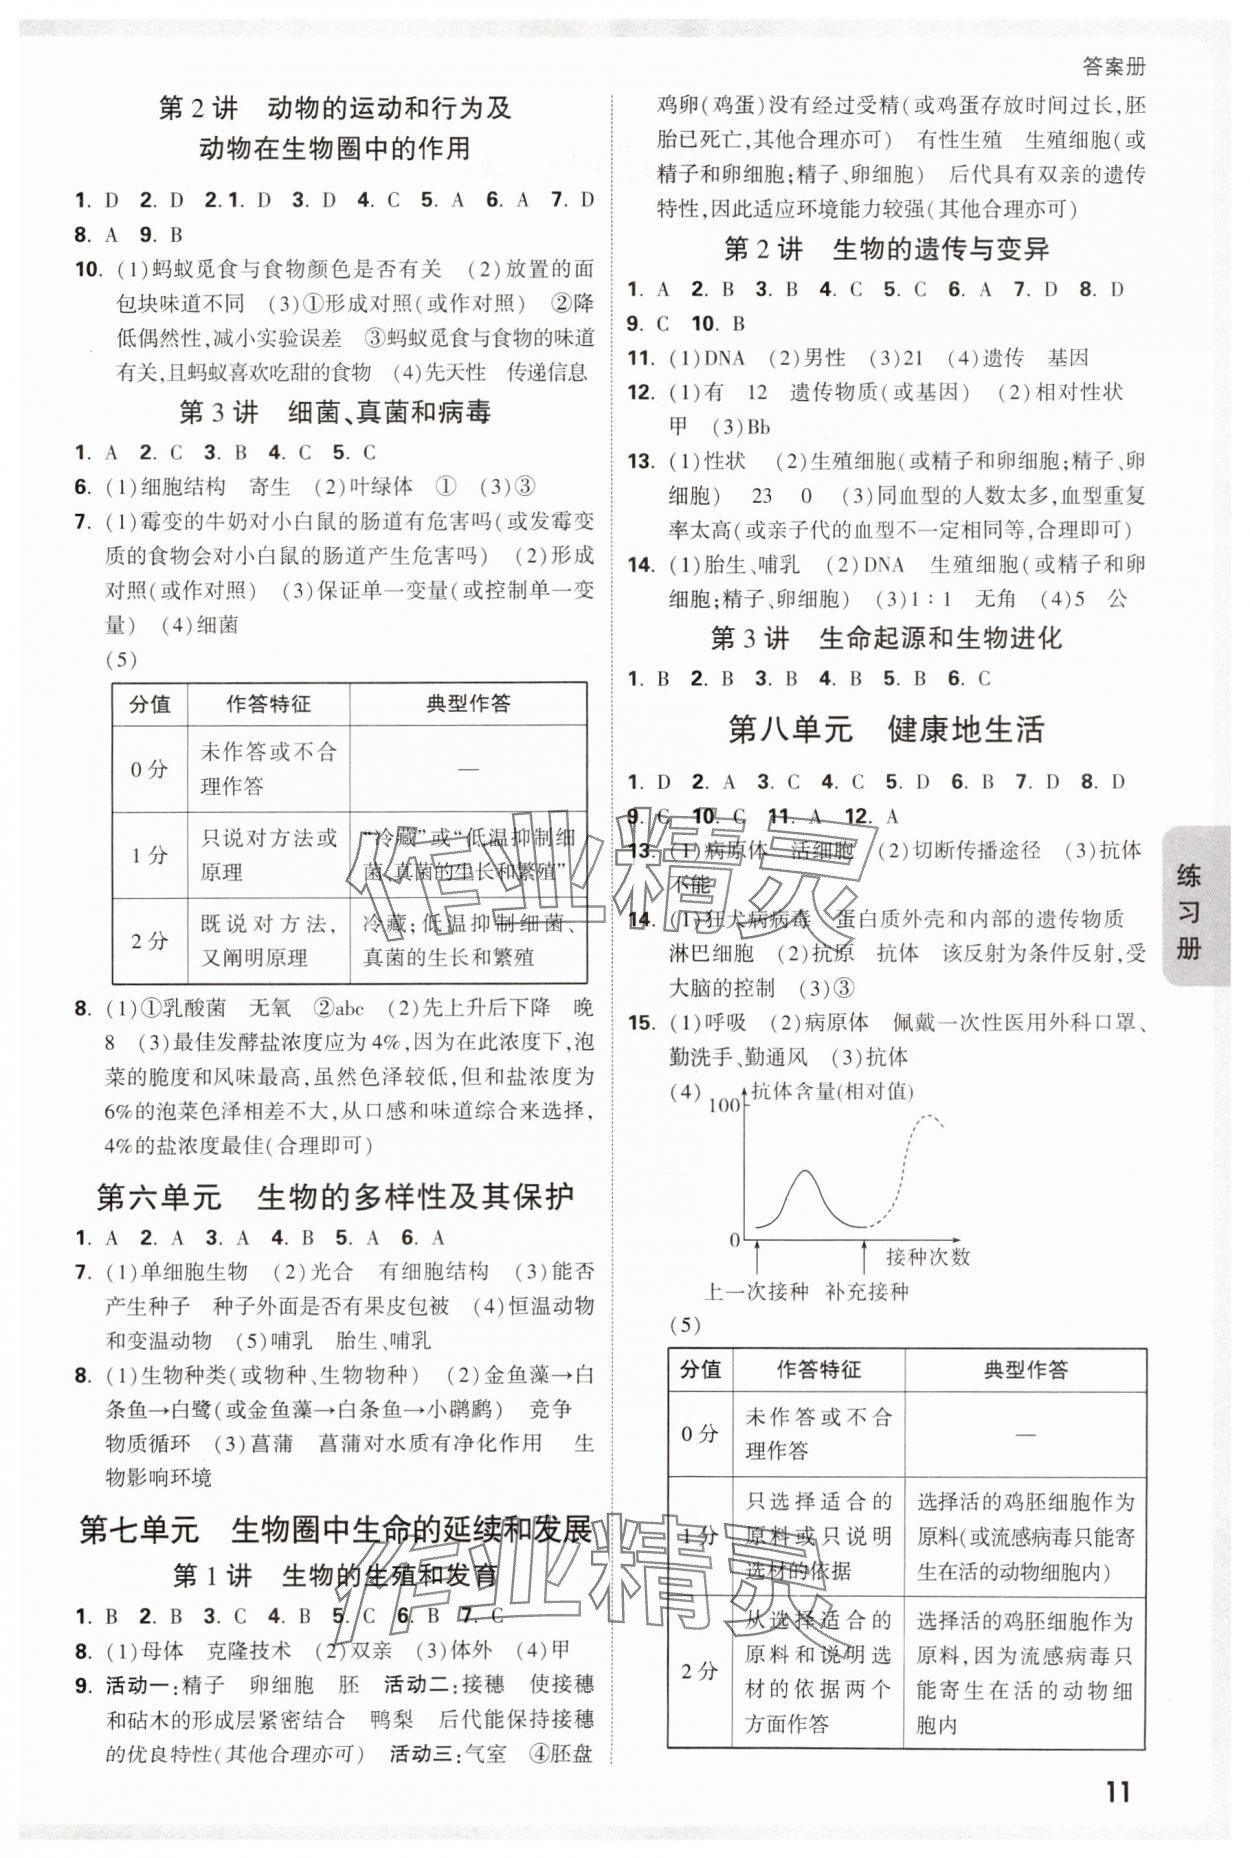 答案册
第 2 讲　动物的运动和行为及
动物在生物圈中的作用
1. D　2. D　2.1. D　3. D　4. C　5. A　6. A　7. D
8. A　9. B
10. (1)蚂蚁觅食与食物颜色是否有关　(2)放置的面
包块味道不同　(3)①形成对照(或作对照)　②降
低偶然性,减小实验误差　③蚂蚁觅食与食物的味道
有关,且蚂蚁喜欢吃甜的食物　(4)先天性　传递信息
第 3 讲　细菌、真菌和病毒
1. A　2. C　3. B　4. C　5. C
6. (1)细胞结构　寄生　(2)叶绿体　①　(3)③
7. (1)霉变的牛奶对小白鼠的肠道有危害吗(或发霉变
质的食物会对小白鼠的肠道产生危害吗)　(2)形成
对照(或作对照)　(3)保证单一变量(或控制单一变
量)　(4)细菌
(5)
分值　作答特征　典型作答
0 分　未作答或不合
理作答　—
1 分　只说对方法或
原理　“冷藏”或“低温抑制细
菌、真菌的生长和繁殖”
2 分　既说对方法,
又阐明原理　冷藏;低温抑制细菌、
真菌的生长和繁殖
8. (1)①乳酸菌　无氧　②abc　(2)先上升后下降　晚
8　(3)最佳发酵盐浓度应为 4%,因为在此浓度下,泡
菜的脆度和风味最高,虽然色泽较低,但和盐浓度为
6%的泡菜色泽相差不大,从口感和味道综合来选择,
4%的盐浓度最佳(合理即可)
第六单元　生物的多样性及其保护
1. A　2. A　3. A　4. B　5. A　6. A
7. (1)单细胞生物　(2)光合　有细胞结构　(3)能否
产生种子　种子外面是否有果皮包被　(4)恒温动物
和变温动物　(5)哺乳　胎生、哺乳
8. (1)生物种类(或物种、生物物种)　(2)金鱼藻→白
条鱼→白鹭(或金鱼藻→白条鱼→小䴙䴘)　竞争
物质循环　(3)菖蒲　菖蒲对水质有净化作用　生
物影响环境
第七单元　生物圈中生命的延续和发展
第 1 讲　生物的生殖和发育
1. B　2. B　3. C　4. B　5. C　6. B　7. C
8. (1)母体　克隆技术　(2)双亲　(3)体外　(4)甲
9. 活动一:精子　卵细胞　胚　活动二:接穗　使接穗
和砧木的形成层紧密结合　鸭梨　后代能保持接穗
的优良特性(其他合理亦可)　活动三:气室　④胚盘
鸡卵(鸡蛋)没有经过受精(或鸡蛋存放时间过长,胚
胎已死亡,其他合理亦可)　有性生殖　生殖细胞(或
精子和卵细胞;精子、卵细胞)　后代具有双亲的遗传
特性,因此适应环境能力较强(其他合理亦可)
第 2 讲　生物的遗传与变异
1. A　2. B　3. B　4. C　5. C　6. A　7. D　8. D
9. C　10. B
11. (1)DNA　(2)男性　(3)21　(4)遗传　基因
12. (1)有　12　遗传物质(或基因)　(2)相对性状
甲　(3)Bb
13. (1)性状　(2)生殖细胞(或精子和卵细胞;精子、卵
细胞)　23　0　(3)同血型的人数太多,血型重复
率太高(或亲子代的血型不一定相同等,合理即可)
14. (1)胎生、哺乳　(2)DNA　生殖细胞(或精子和卵
细胞;精子、卵细胞)　(3)1∶1　无角　(4)5　公
第 3 讲　生命起源和生物进化
1. B　2. B　3. B　4. B　5. B　6. C
第八单元　健康地生活
1. D　2. A　3. C　4. C　5. D　6. B　7. D　8. D
9. C　10. C　11. A　12. A
13. (1)病原体　活细胞　(2)切断传播途径　(3)抗体
不能
14. (1)狂犬病病毒　蛋白质外壳和内部的遗传物质
淋巴细胞　(2)抗原　抗体　该反射为条件反射,受
大脑的控制　(3)③
15. (1)呼吸　(2)病原体　佩戴一次性医用外科口罩、
勤洗手、勤通风　(3)抗体
(4)　抗体含量(相对值)
100
0
接种次数
上一次接种　补充接种
(5)
分值　作答特征　典型作答
0 分　未作答或不合
理作答　—
1 分　只选择适合的
原料或只说明
选材的依据　选择活的鸡胚细胞作为
原料(或流感病毒只能寄
生在活的动物细胞内)
2 分　从选择适合的
原料和说明选
材的依据两个
方面作答　选择活的鸡胚细胞作为
原料,因为流感病毒只
能寄生在活的动物细
胞内
练习册
11
作业精灵
作业精灵